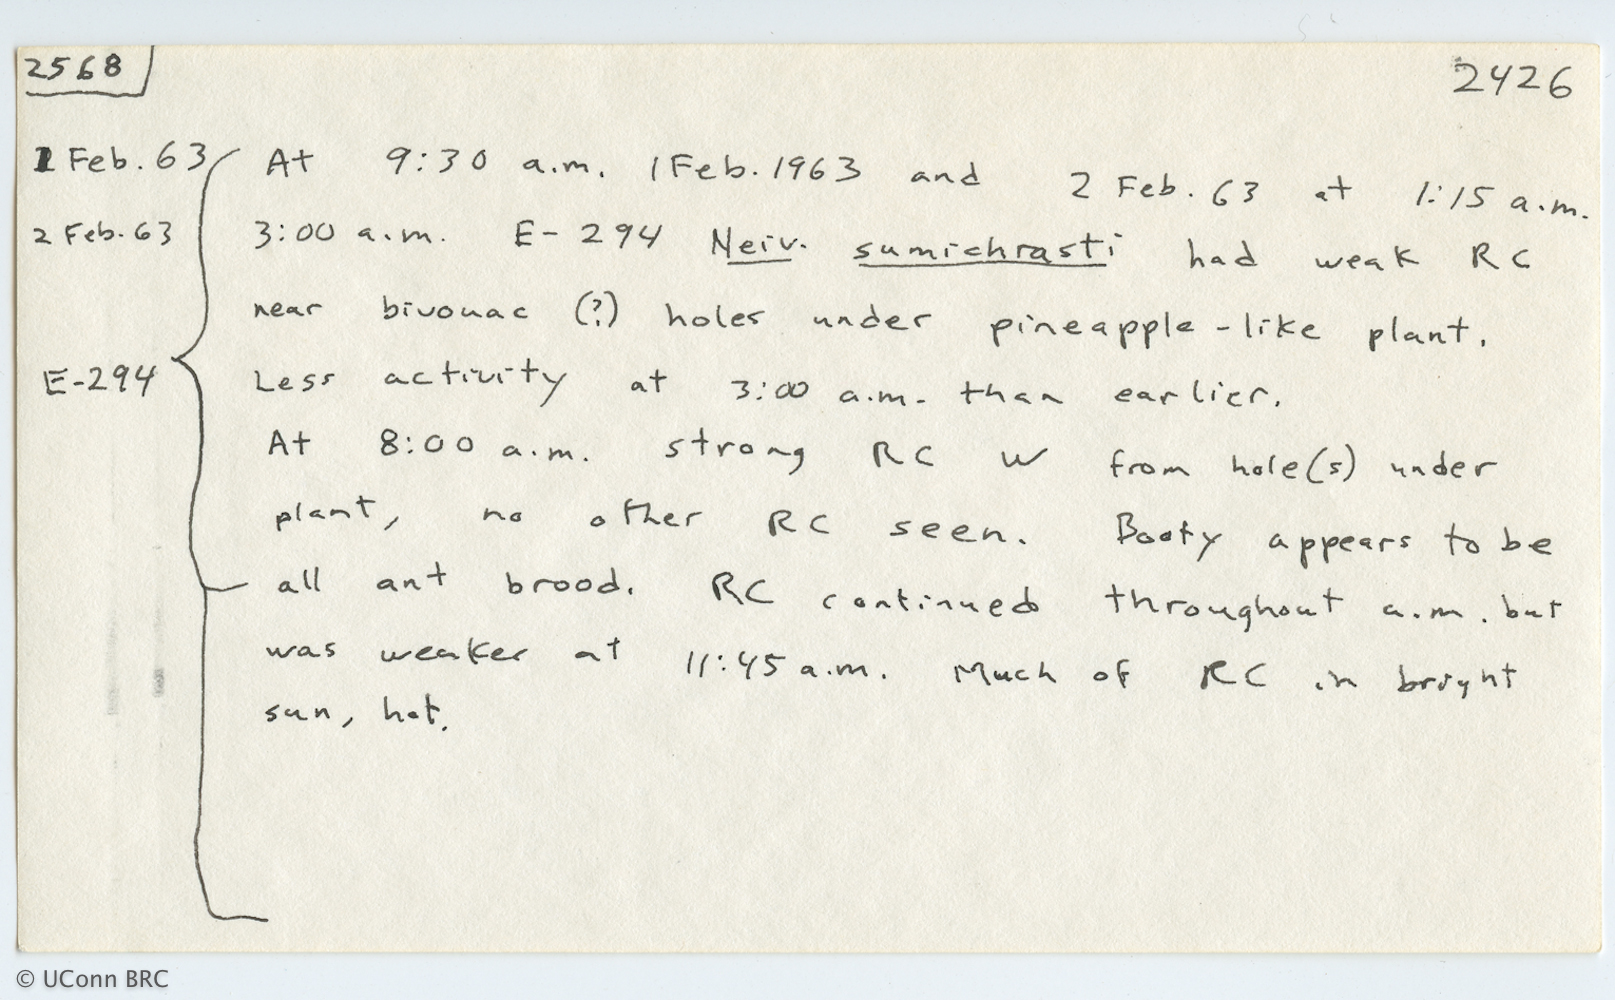 2568
2426
1 Feb. 63
2 Feb. 63
E-294
At 9:30 a.m. 1 Feb. 1963 and 2 Feb. 63 at 1:15 a.m.
3:00 a.m. E-294 Neiv. sumichrasti had weak RC
near bivouac (?) holes under pineapple-like plant.
Less activity at 3:00 a.m. than earlier.
At 8:00 a.m. strong RC W from hole(s) under
plant, no other RC seen. Booty appears to be
all ant brood. RC continued throughout a.m. but
was weaker at 11:45 a.m. Much of RC in bright
sun, hot.
© UConn BRC